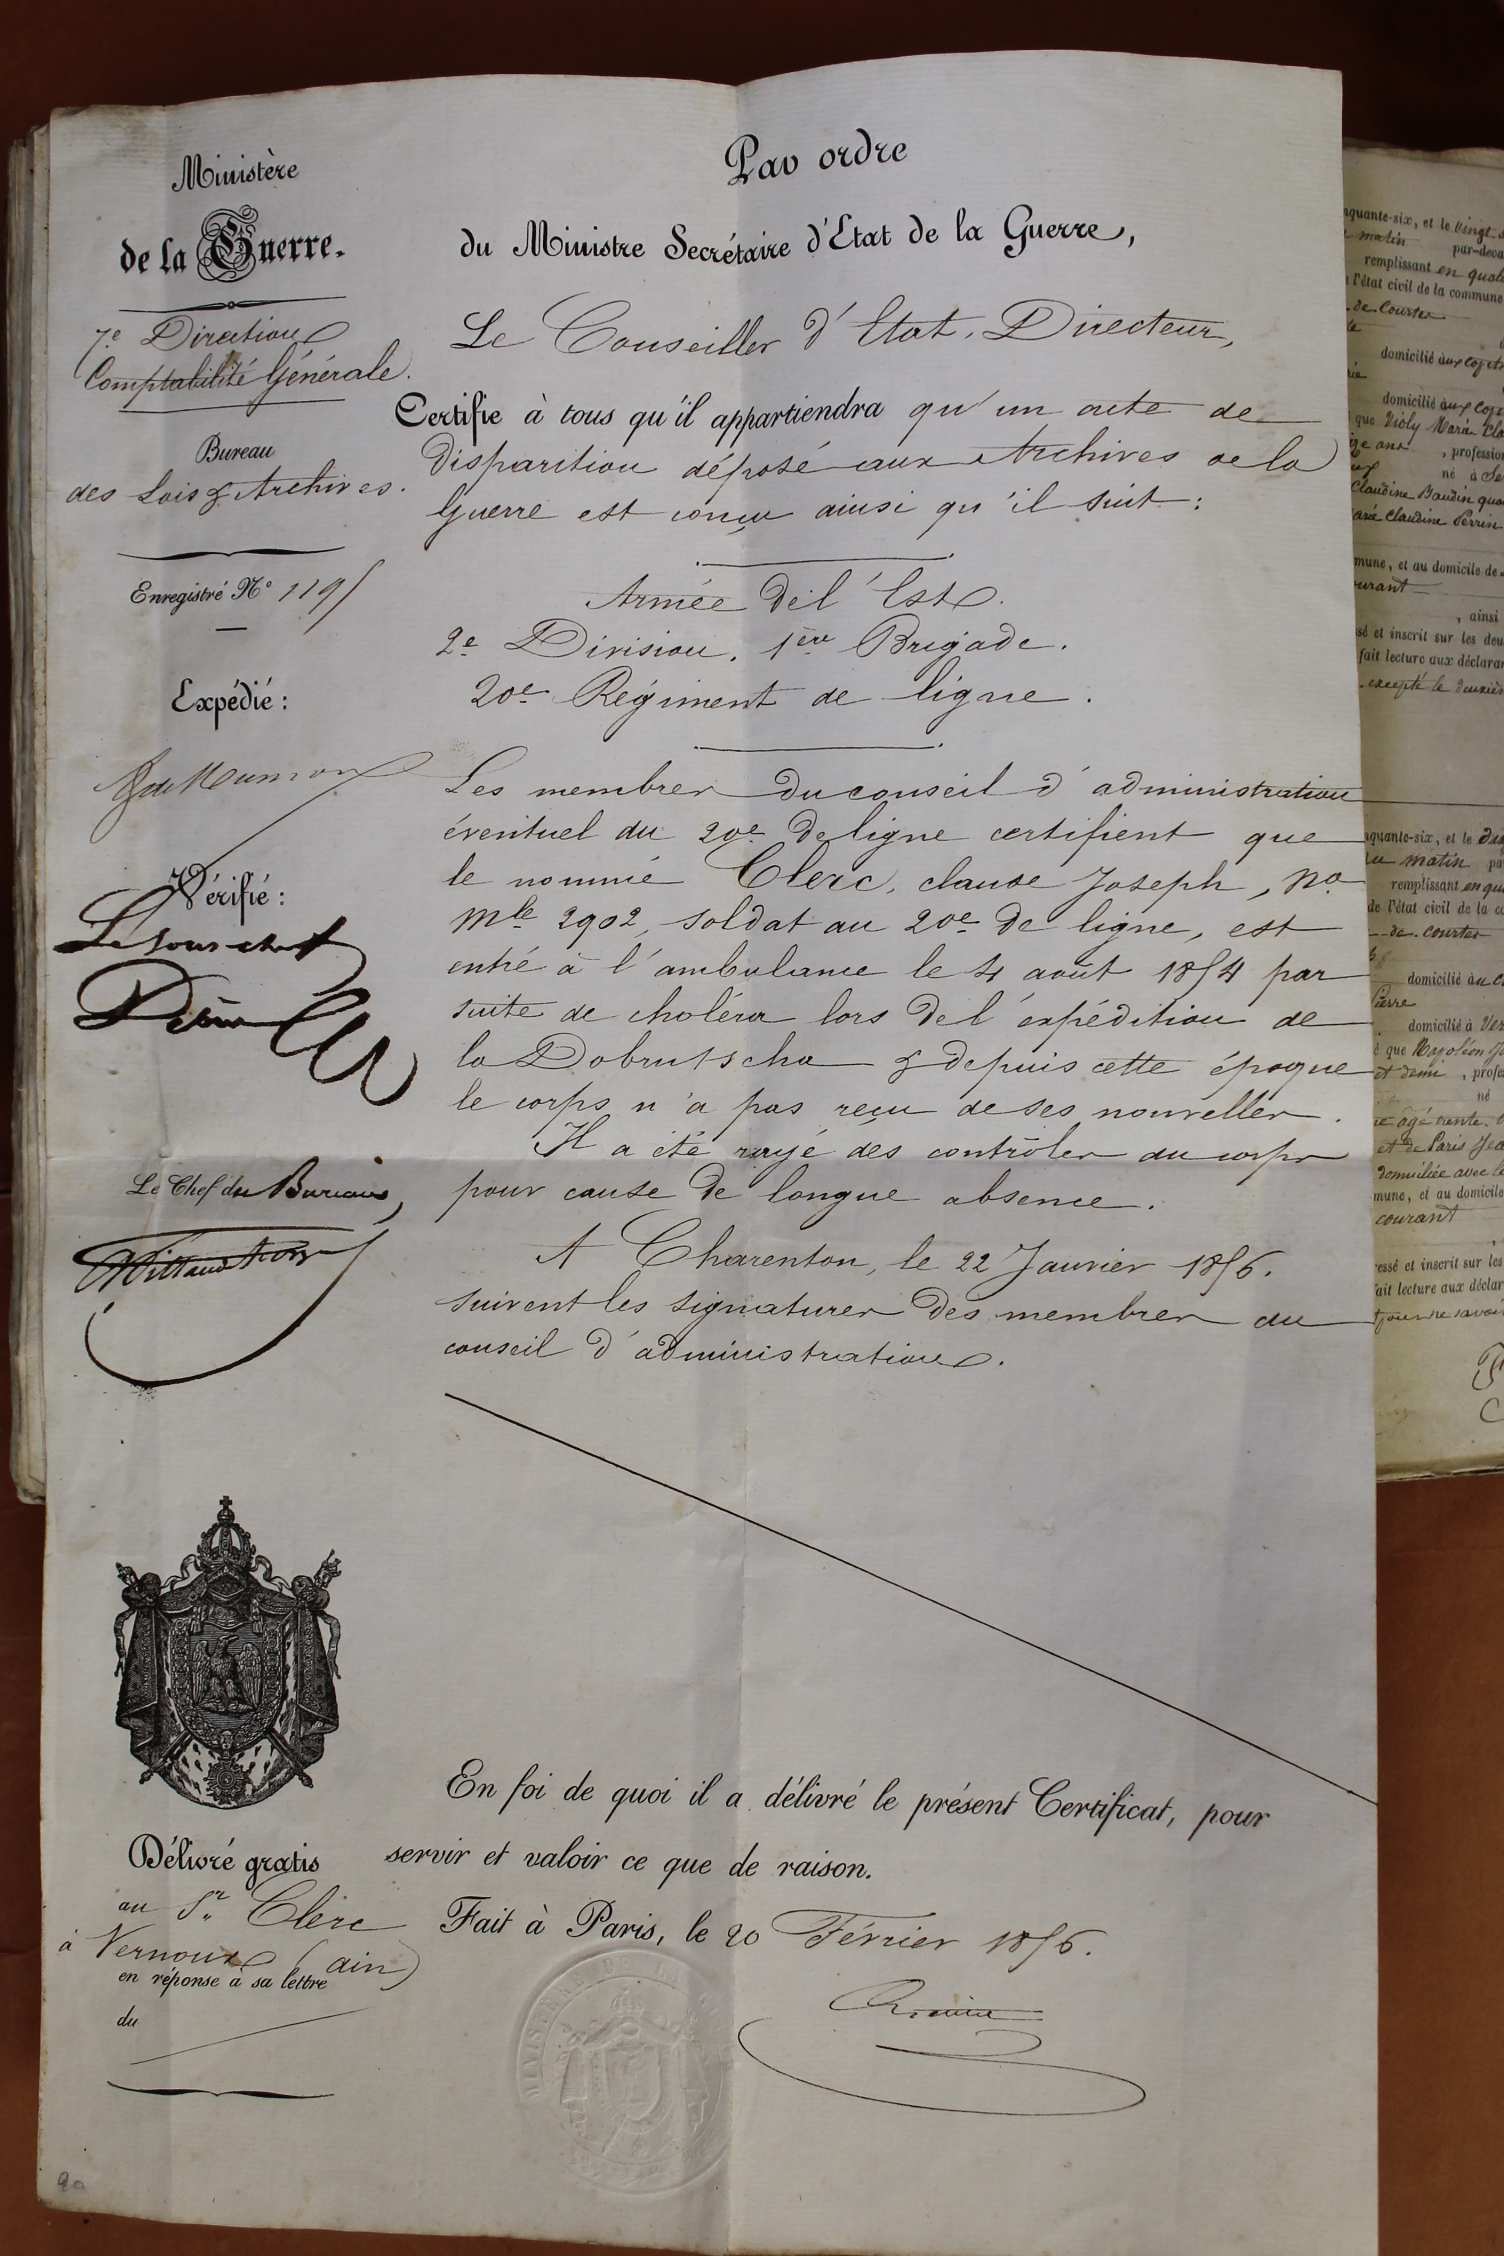 Ministère
de la Guerre.
7e Direction
Comptabilité Générale.
Bureau
des Lois & Archives.
Enregistré No 1195
Expédié :
Vérifié :
Le sous chef
Le Chef du Bureau,
Délivré gratis
au Sr Clerc
à Vernoux (ain)
en réponse à sa lettre
du
20
Par ordre
du Ministre Secrétaire d'Etat de la Guerre,
Le Conseiller d'Etat, Directeur,
Certifie à tous qu'il appartiendra qu'un acte de
disparition déposé aux Archives de la
Guerre est conçu ainsi qu'il suit :
Armée de l'Est.
2e Division. 1ère Brigade.
20e Régiment de ligne.
Les membres du conseil d'administration
éventuel du 20e de ligne certifient que
le nommé Clerc, claude Joseph, No
Mle 2902, soldat au 20e de ligne, est
entré à l'ambulance le 4 août 1854 par
suite de choléra lors de l'expédition de
la Dobrutscha & depuis cette époque
le corps n'a pas reçu de ses nouvelles.
Il a été rayé des contrôles du corps
pour cause de longue absence.
A Charenton, le 22 Janvier 1856.
suivent les signatures des membres du
conseil d'administration.
En foi de quoi il a délivré le présent Certificat, pour
servir et valoir ce que de raison.
Fait à Paris, le 20 Février 1856.
nquante-six, et le vingt
matin par-deva
remplissant en qual
l'état civil de la commune
de Courtes
domicilié aux
domicilié aux
que Violy Marie Cla
ans , profession
né à
Claudine Baudin
Claudine Perrin
mune, et au domicile de
courant
, ainsi
sé et inscrit sur les deu
fait lecture aux déclaran
excepté le deuxiè
nquante-six, et le
du matin pa
remplissant en qu
de l'état civil de la co
de courtes
domicilié au
Pierre
domicilié à Ver
que Napoléon
et demi , profes
né
agé trente
et de Paris
domiciliée avec
mune, et au domicile
courant
ressé et inscrit sur les
fait lecture aux déclar